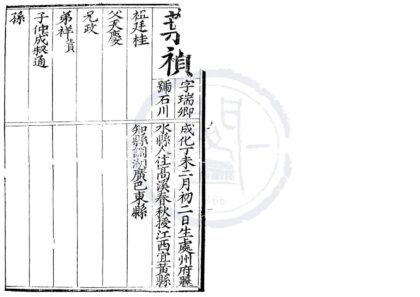 禎
字瑞卿
號石川
成化丁未二月初二日生處州府麗
水縣人住高溪春秋授江西宜黃縣
知縣調湖廣巴東縣
祖廷桂
父天慶
兄政
弟祥貴
子 成叔通
孫